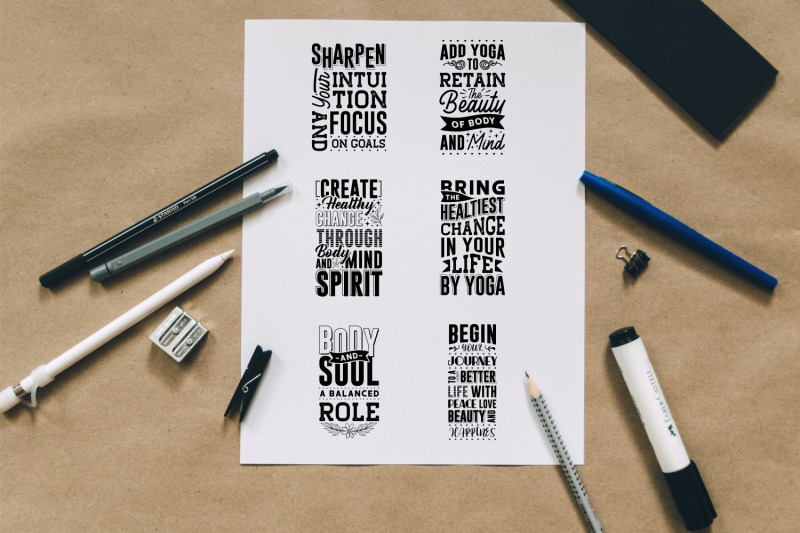 SHARPEN
Your INTUI
TION
AND FOCUS
ON GOALS
ADD YOGA
TO
RETAIN
The
Beauty
OF BODY
AND Mind
[CREATE]
Healthy
CHANGE
THROUGH
Body
AND MIND
SPIRIT
BRING
THE
HEALTIEST
CHANGE
IN YOUR
LIFE
BY YOGA
BODY
-AND-
SOUL
A BALANCED
ROLE
BEGIN
your
JOURNEY
TO A BETTER
LIFE WITH
PEACE LOVE
BEAUTY AND
HAPPINES
STABILO